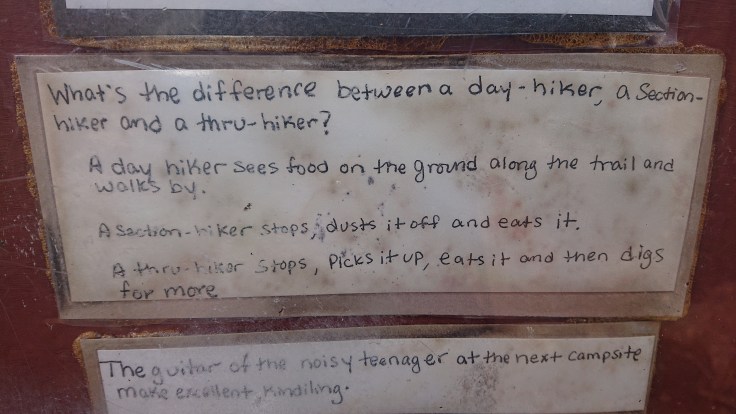 What's the difference between a day-hiker, a Section-
hiker and a thru-hiker?
A day hiker sees food on the ground along the trail and
walks by.
A Section-hiker stops, dusts it off and eats it.
A thru-hiker stops, picks it up, eats it and then digs
for more
The guitar of the noisy teenager at the next campsite
make excellent kindiling.